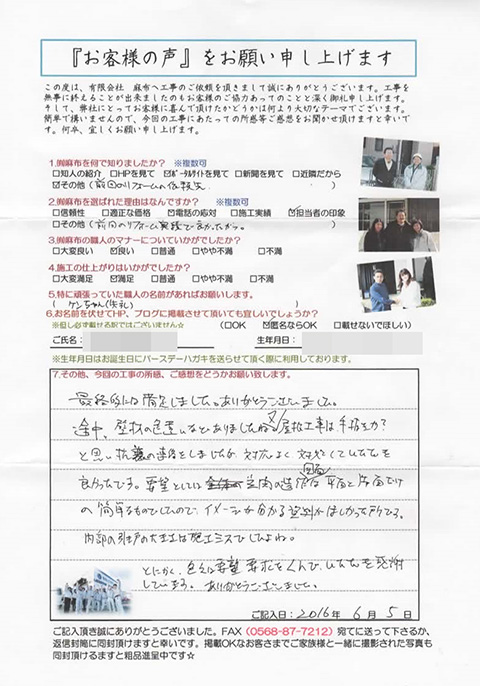 『お客様の声』をお願い申し上げます
この度は、有限会社 麻布へ工事のご依頼を頂きまして誠にありがとうございます。工事を
無事に終えることが出来ましたのもお客様のご協力あってのことと深く御礼申し上げます。
そして、弊社にとってお客様に喜んで頂けたかどうかは何より大切なテーマでございます。
簡単で構いませんので、今回の工事にあたっての所感等ご感想をお聞かせ頂けますと幸いで
す。何卒、宜しくお願い申し上げます。
1.㈲麻布を何で知りましたか? ※複数可
□知人の紹介 □HPを見て ☑ポータルサイトを見て □新聞を見て □近隣だから
☑その他 (前回のリフォームの依頼先 )
2.㈲麻布を選ばれた理由はなんですか? ※複数可
□信頼性 □適正な価格 ☑電話の応対 □施工実績 ☑担当者の印象
□その他 (前回のリフォーム実績で良かったから。 )
3.㈲麻布の職人のマナーについていかがでしたか?
□大変良い ☑良い □普通 □やや不満 □不満
4.施工の仕上がりはいかがでしたか?
□大変満足 ☑満足 □普通 □やや不満 □不満
5.特に頑張っていた職人の名前があればお願いします。
(ケンちゃん(失礼) )
6.お名前を伏せてHP、ブログに掲載させて頂いても宜しいでしょうか?
※但し必ず載せる訳ではございません☆ □OK ☑匿名ならOK □載せないでほしい)
ご氏名: 生年月日:
※生年月日はお誕生日にバースデーハガキを送らせて頂く際に利用しております。
7.その他、今回の工事の所感、ご感想をどうかお願い致します。
最終的には満足しました。ありがとうございました。
途中、壁材の色違いなどありましたね。又屋根工事は手抜きか?
と思い 連絡をしましたが 対応よく対処していただき
良かったです。要望としては 図面 平面と だけ
の簡単なものでしたので、イメージが分かる資料がほしかった所です。
内部の引戸の 施工ミスでしたよね。
とにかく、色々要望 要求をくんでいただき感謝
しています。ありがとうございました。
ご記入日: 2016年 6月 5日
ご記入頂き誠にありがとうございました。FAX (0568-87-7212) 宛てに送って下さるか、
返信封筒に同封頂けますと幸いです。掲載OKなお客さまでご家族様と一緒に撮影された写真も
同封頂けますと粗品進呈中です☆